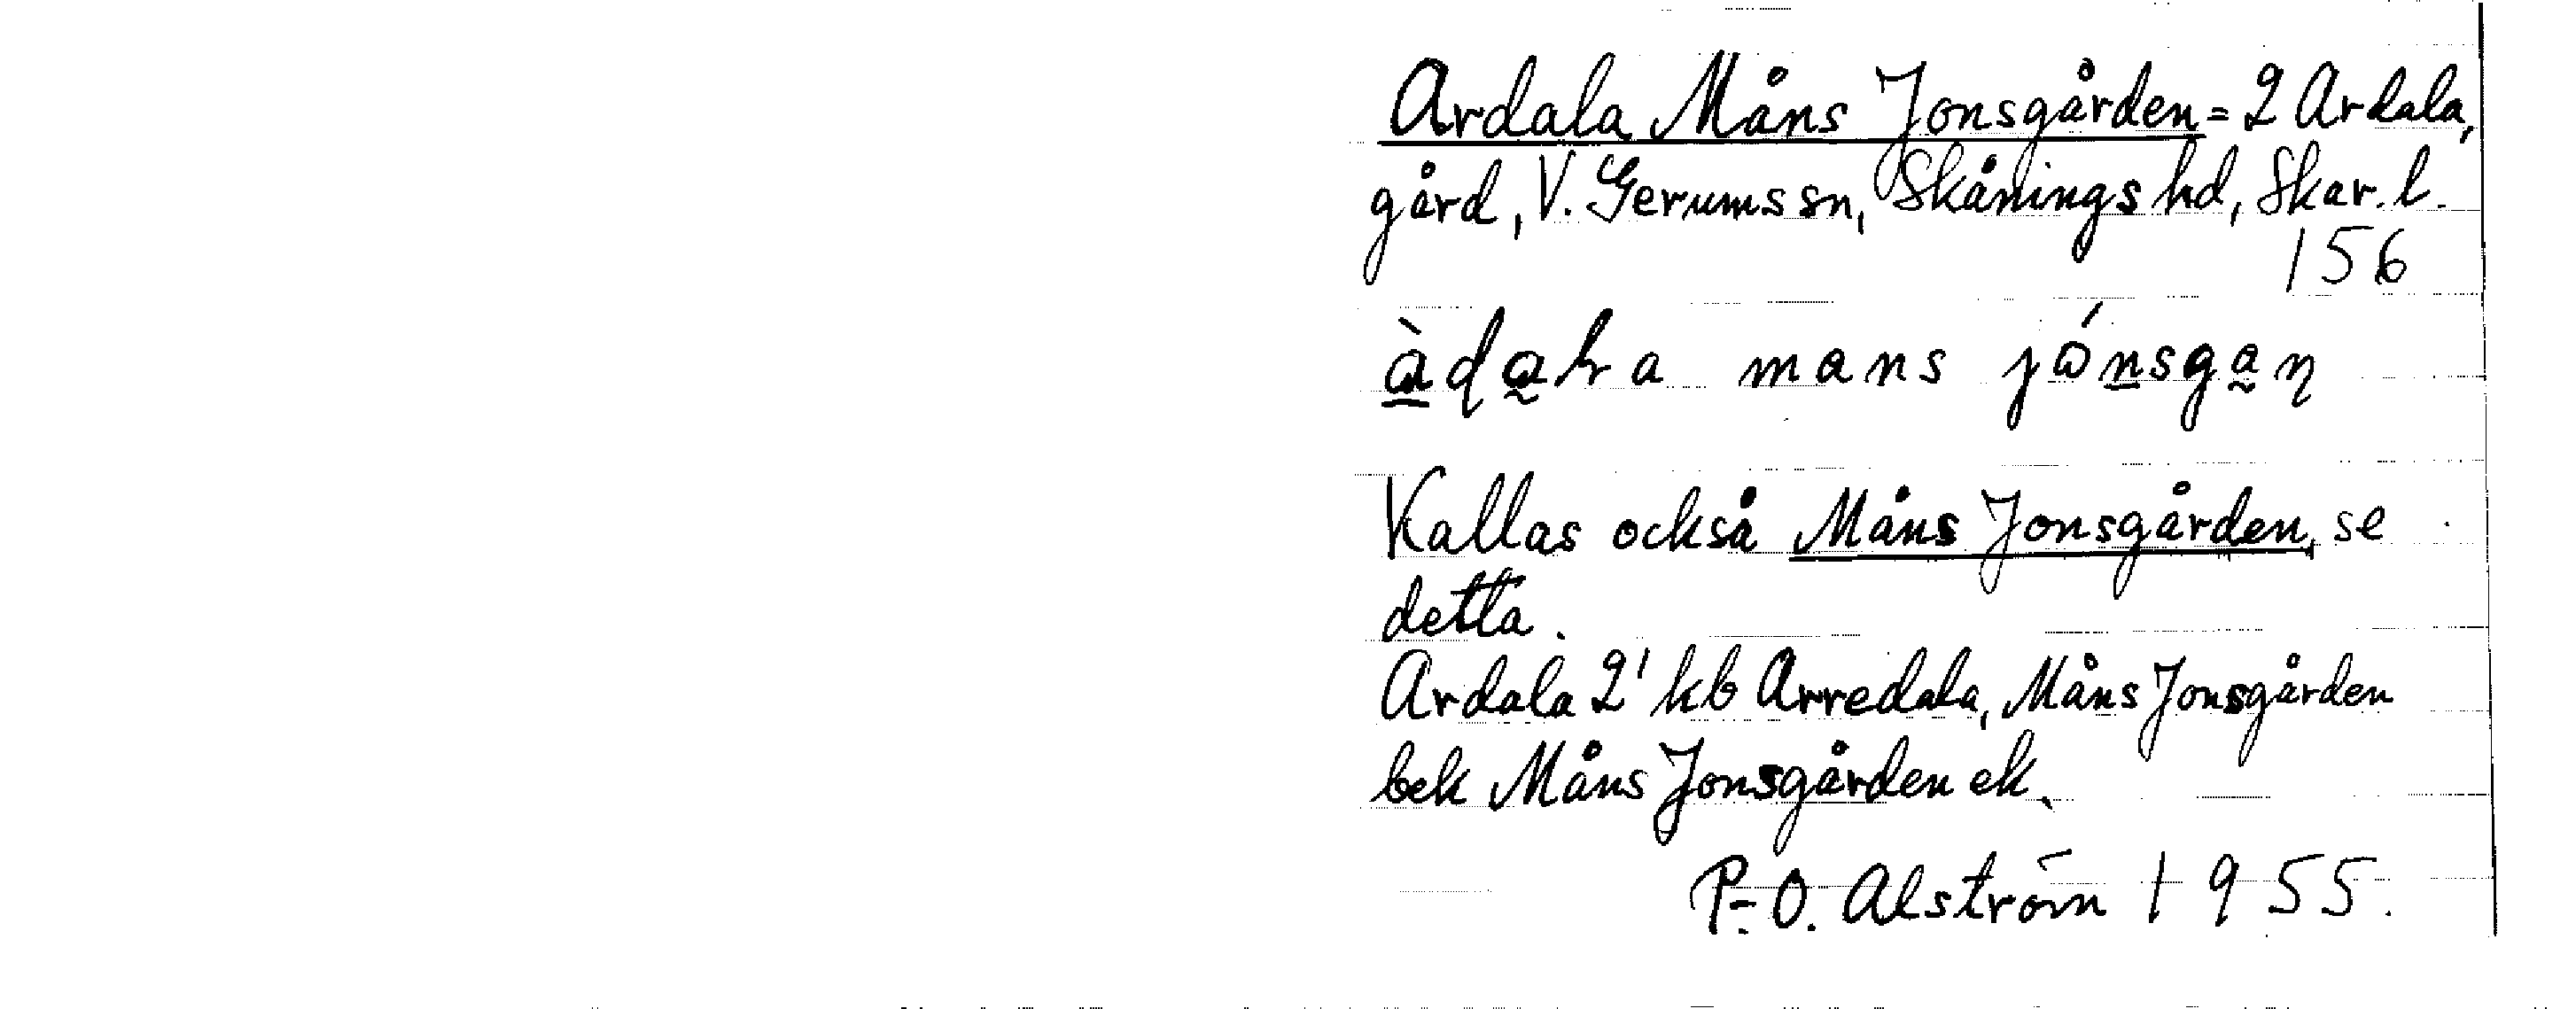 Ardala Måns Jonsgården = 2 Ardala,
gård, V. Gerums sn, Skånings hd, Skar. l.
156
mans
Kallas också Måns Jonsgården, se
detta.
Ardala 2¹ kb Arredala, Måns Jonsgården
bek Måns Jonsgården ek.
P.-O. Alström 1955.